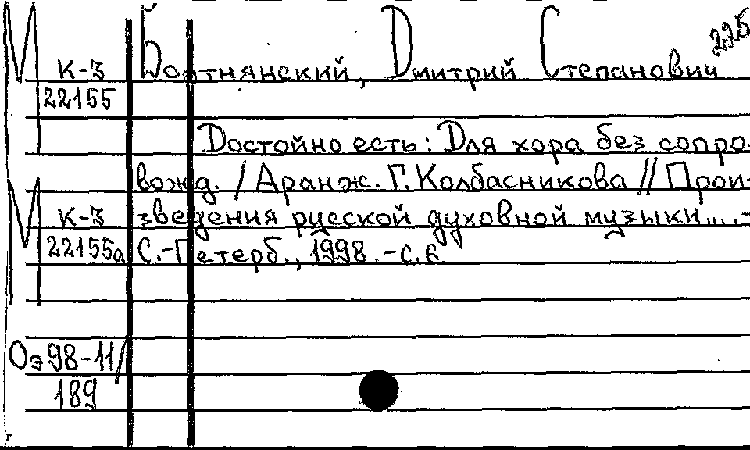 225
М К-3 Бортнянский, Дмитрий Степанович
22155
Достойно есть: Для хора без сопро-
вожд. / Аранж. Г. Колбасникова // Прои-
М К-3 зведения русской духовной музыки... -
22155а С.-Петерб., 1998. - С. 6
Оэ98-11/
189